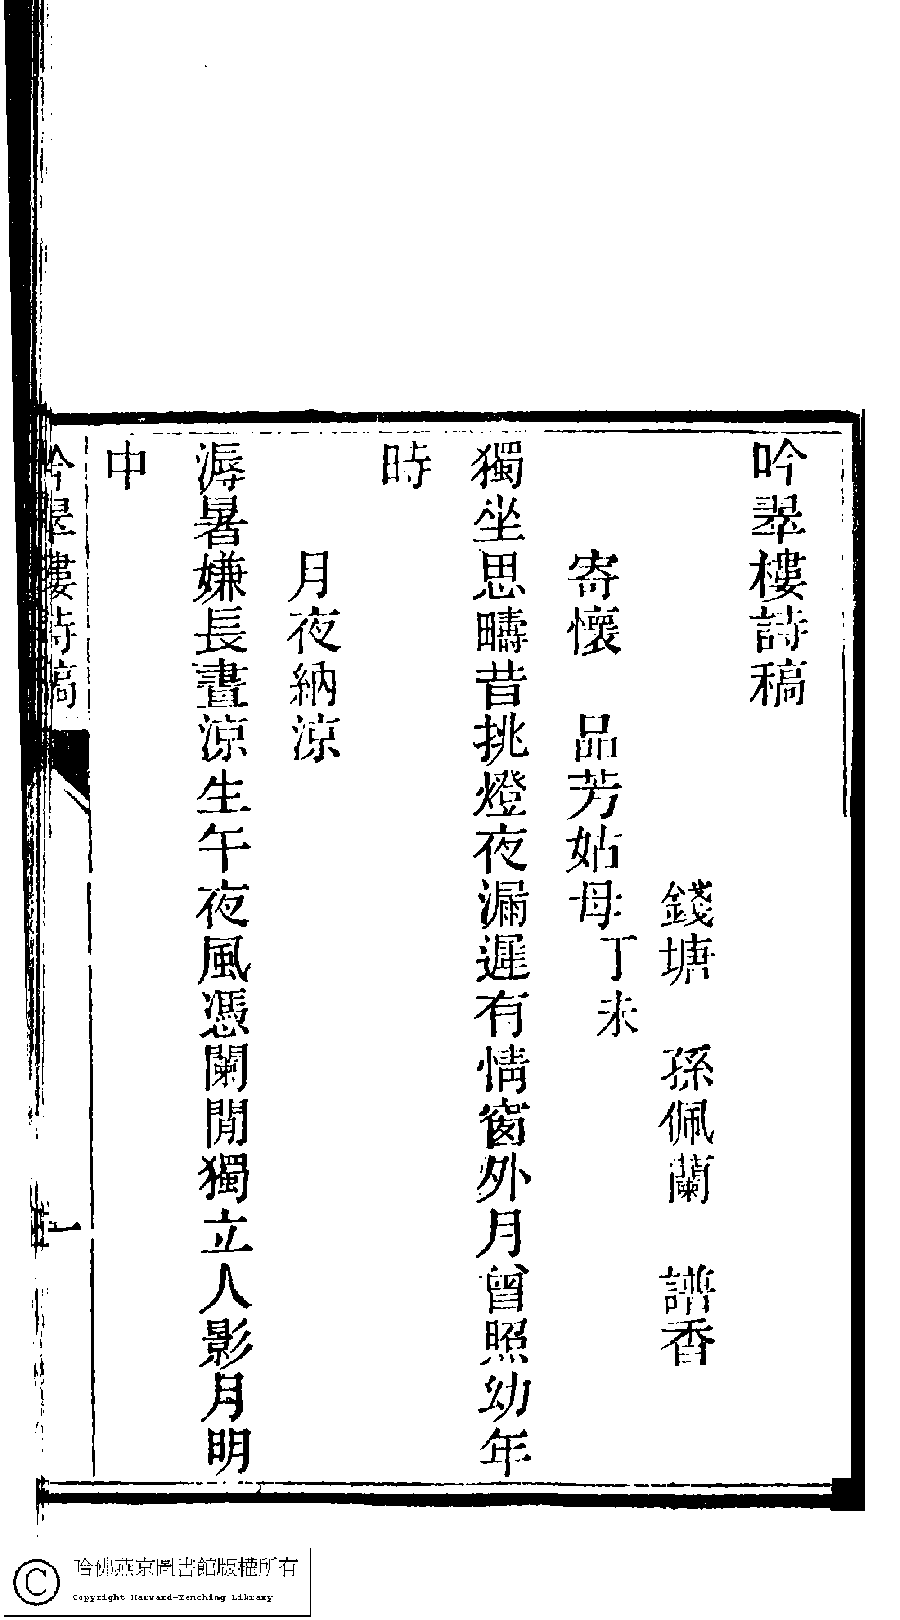 吟翠樓詩稿
錢塘　孫佩蘭　譜香
寄懷　品芳姑母丁未
獨坐思疇昔挑燈夜漏遲有情窗外月曾照幼年
時
月夜納涼
溽暑嫌長晝涼生午夜風憑闌閒獨立人影月明
中
吟翠樓詩稿
一
哈佛燕京圖書館版權所有
Copyright Harvard-Yenching Library